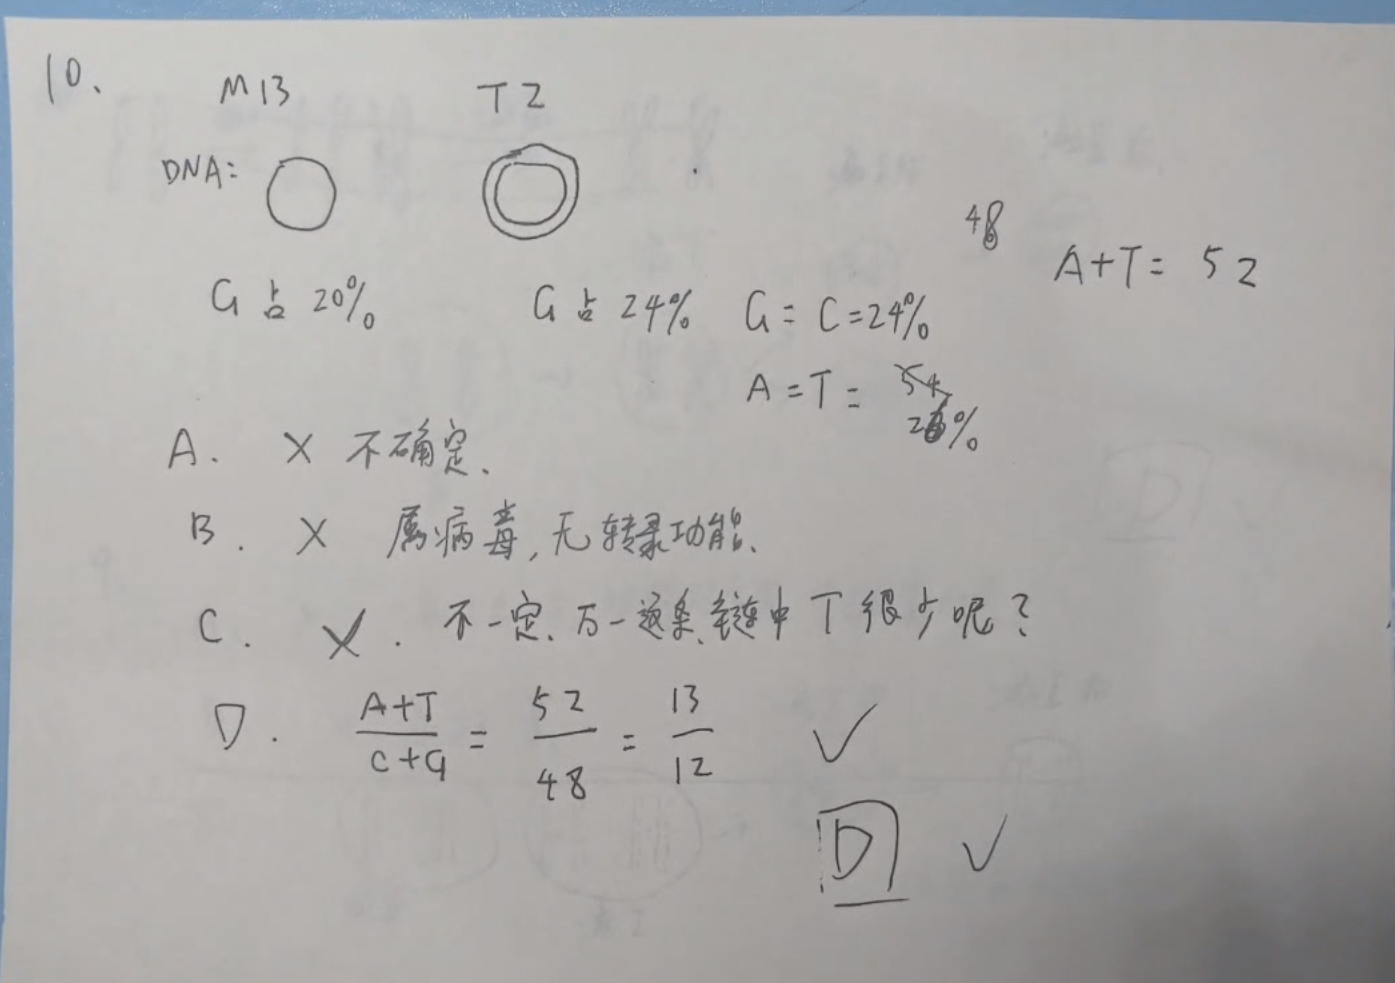 10.
M13 T2
DNA:
48
A+T= 52
G 占 20% G 占 24% G = C=24%
A =T= 54
26%
A. × 不确定.
B. × 属病毒,无转录功能.
C. ×. 不一定.万一这条链中T很少呢?
D. A+T/C+G = 52/48 = 13/12 ✓
D ✓